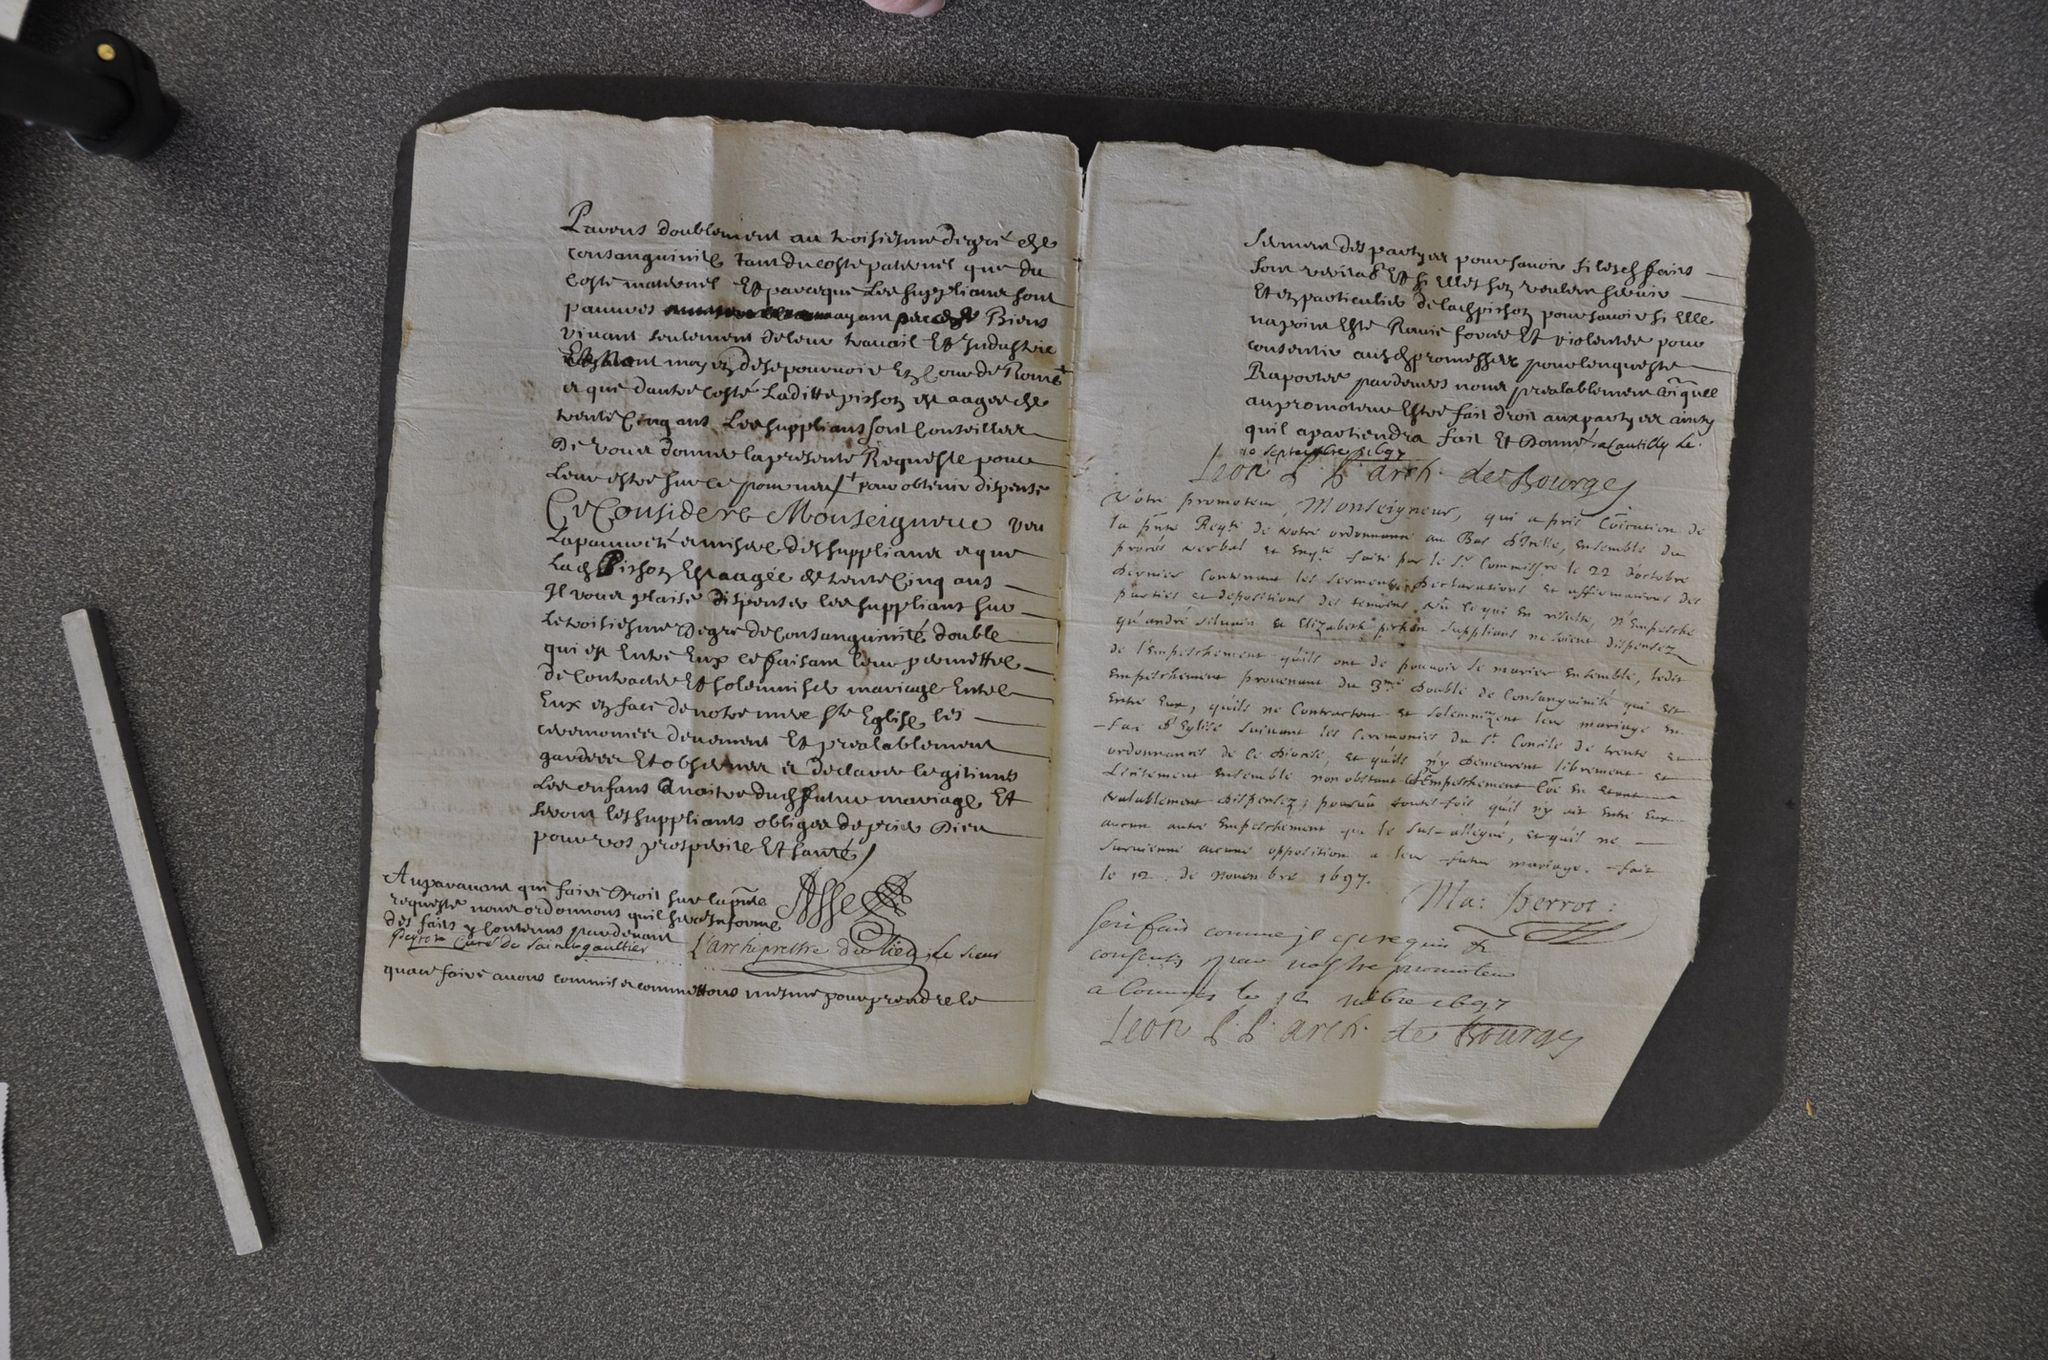 Parens doublement au troisiesme degré de
consanguinité tant du costé paternel que du
costé maternel Et parceque Les suppliants sont
pauvres ayant peu de Biens
vivant seulement de leur travail Et Industrie
moyen de se pourvoir En Cour de Rome
et que dautre costé Laditte pichon est aagée de
trente Cinq ans Les suppliants sont Conseillez
De vous donner la presente Requeste pour
Leur estre sur ce pourveu pour obtenir dispense
Ce Consideré Monseigneur veu
La pauvreté et misere des suppliants et que
Lad Pichon Est aagée de trente Cinq ans
Il vous plaise dispenser les suppliants sur
Le troisiesme Degre de Consanguinité double
qui est Entre Eux ce faisant leur permettre
de Contracter Et solemniser mariage Entre
Eux en face de notre mere Ste Eglise les
ceremonies deuement Et prealablement
gardées Et observées et declarer legitimes
Les enfans A naitre dud futur mariage Et
seront les suppliants obligez de prier Dieu
pour vos prosperité Et santé
Auparavant que faire Droit sur la pnte
requeste nous ordonnons quil sera Informé
des faits y Contenus pardevant
Curé de Saint gaultier L'archiprestre du lieu, Le sieur
quau faire avons commis et commettons mesme pour prendre le
serment des partyes pour savoir si lesd faits
sont veritab Et si Elles sen veulent servir
Et en particulier de lad pichon pour savoir si Elle
na point Esté Ravie forcée Et violentée pour
consentir ausd promesses pour lenqueste
Raportée pardevers nous prealablement Coiquée
au promoteur Estre fait droit aux partyes ainsy
quil apartiendra fait Et Donné a Cantilly Le
10 septembre 1697
Leon P. P. arch. de Bourges
Votre promoteur, Monseigneur, qui a pris Coication de
la pnte Reqte de votre ordonnance au Bas D'Icelle, ensemble du
procés verbal et Enqte faite par le Sr Commissre le 22 d'octobre
Dernier Contenant les serments Declarations et affirmations des
parties et depositions des temoins, Vû ce qui En resulte, N'Empesche
qu'andré silvain et Elizabeth pichon suppliants ne soient dispensez
de l'Empeschement qu'ils ont de pouvoir se marier Ensemble, ledit
Empeschement provenant du 3me double de Consanguinité qui est
Entre Eux, qu'ils ne Contractent et solemnizent leur mariage En
face d'Eglise suivant les Ceremonies du St Concile de trente et
ordonnances de ce Diocese, et qu'ils n'y Demeurent librement et
Licitement Ensemble non obstant led Empeschement Coe En etant
valablement dispensez; pourvû toutes fois qu'il n'y ait Entre Eux
aucun autre Empeschement que le sus-allegué, et qu'il ne
survienne aucune opposition a leur futur mariage. fait
le 12. de Novembre 1697.
Ma: Perrot:
Soit fait comme il est requis &
consenty par nostre promoteur
a Bourges le 12 nobre 1697
Leon P. P. arch. de Bourges